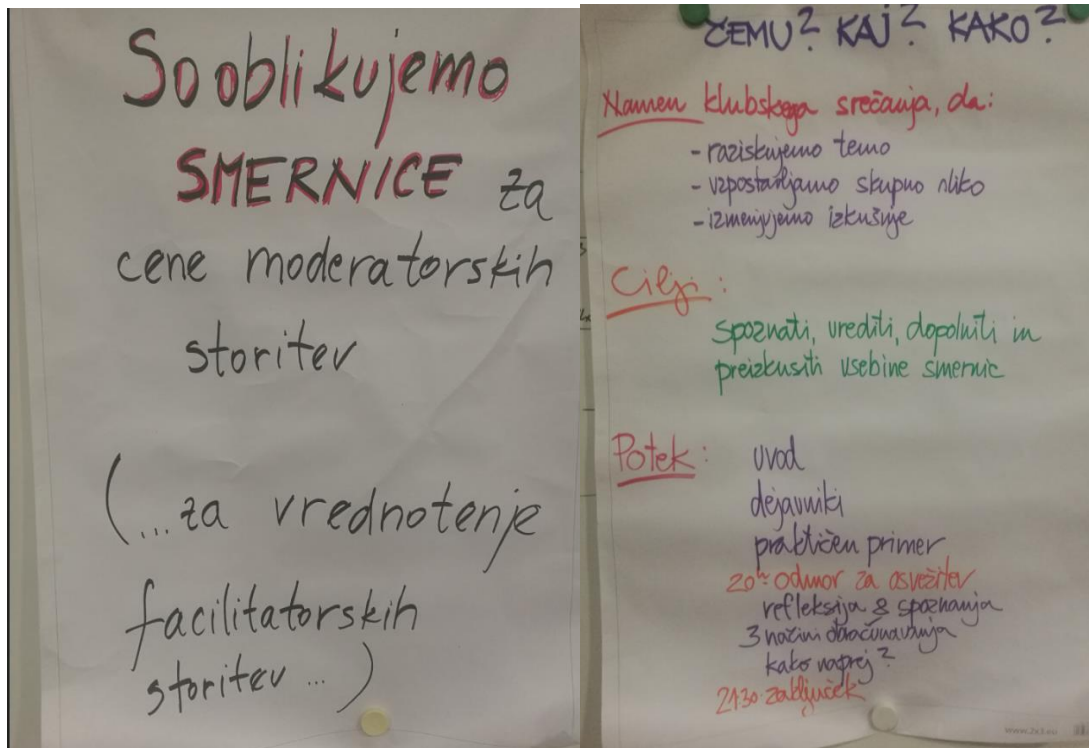 Sooblikujemo
SMERNICE za
cene moderatorskih
storitev
(...za vrednotenje
facilitatorskih
storitev ...)
ČEMU? KAJ? KAKO?
Namen klubskega srečanja, da:
- raziskujemo temo
- vzpostavljamo skupno sliko
- izmenjujemo izkušnje
Cilji:
spoznati, urediti, dopolniti in
preizkusiti vsebine smernic
Potek: uvod
dejavniki
praktičen primer
20:- odmor za osvežitev
refleksija & spoznanja
3 načini obračunavanja
kako naprej?
21:30 zaključek
www.2s3.eu